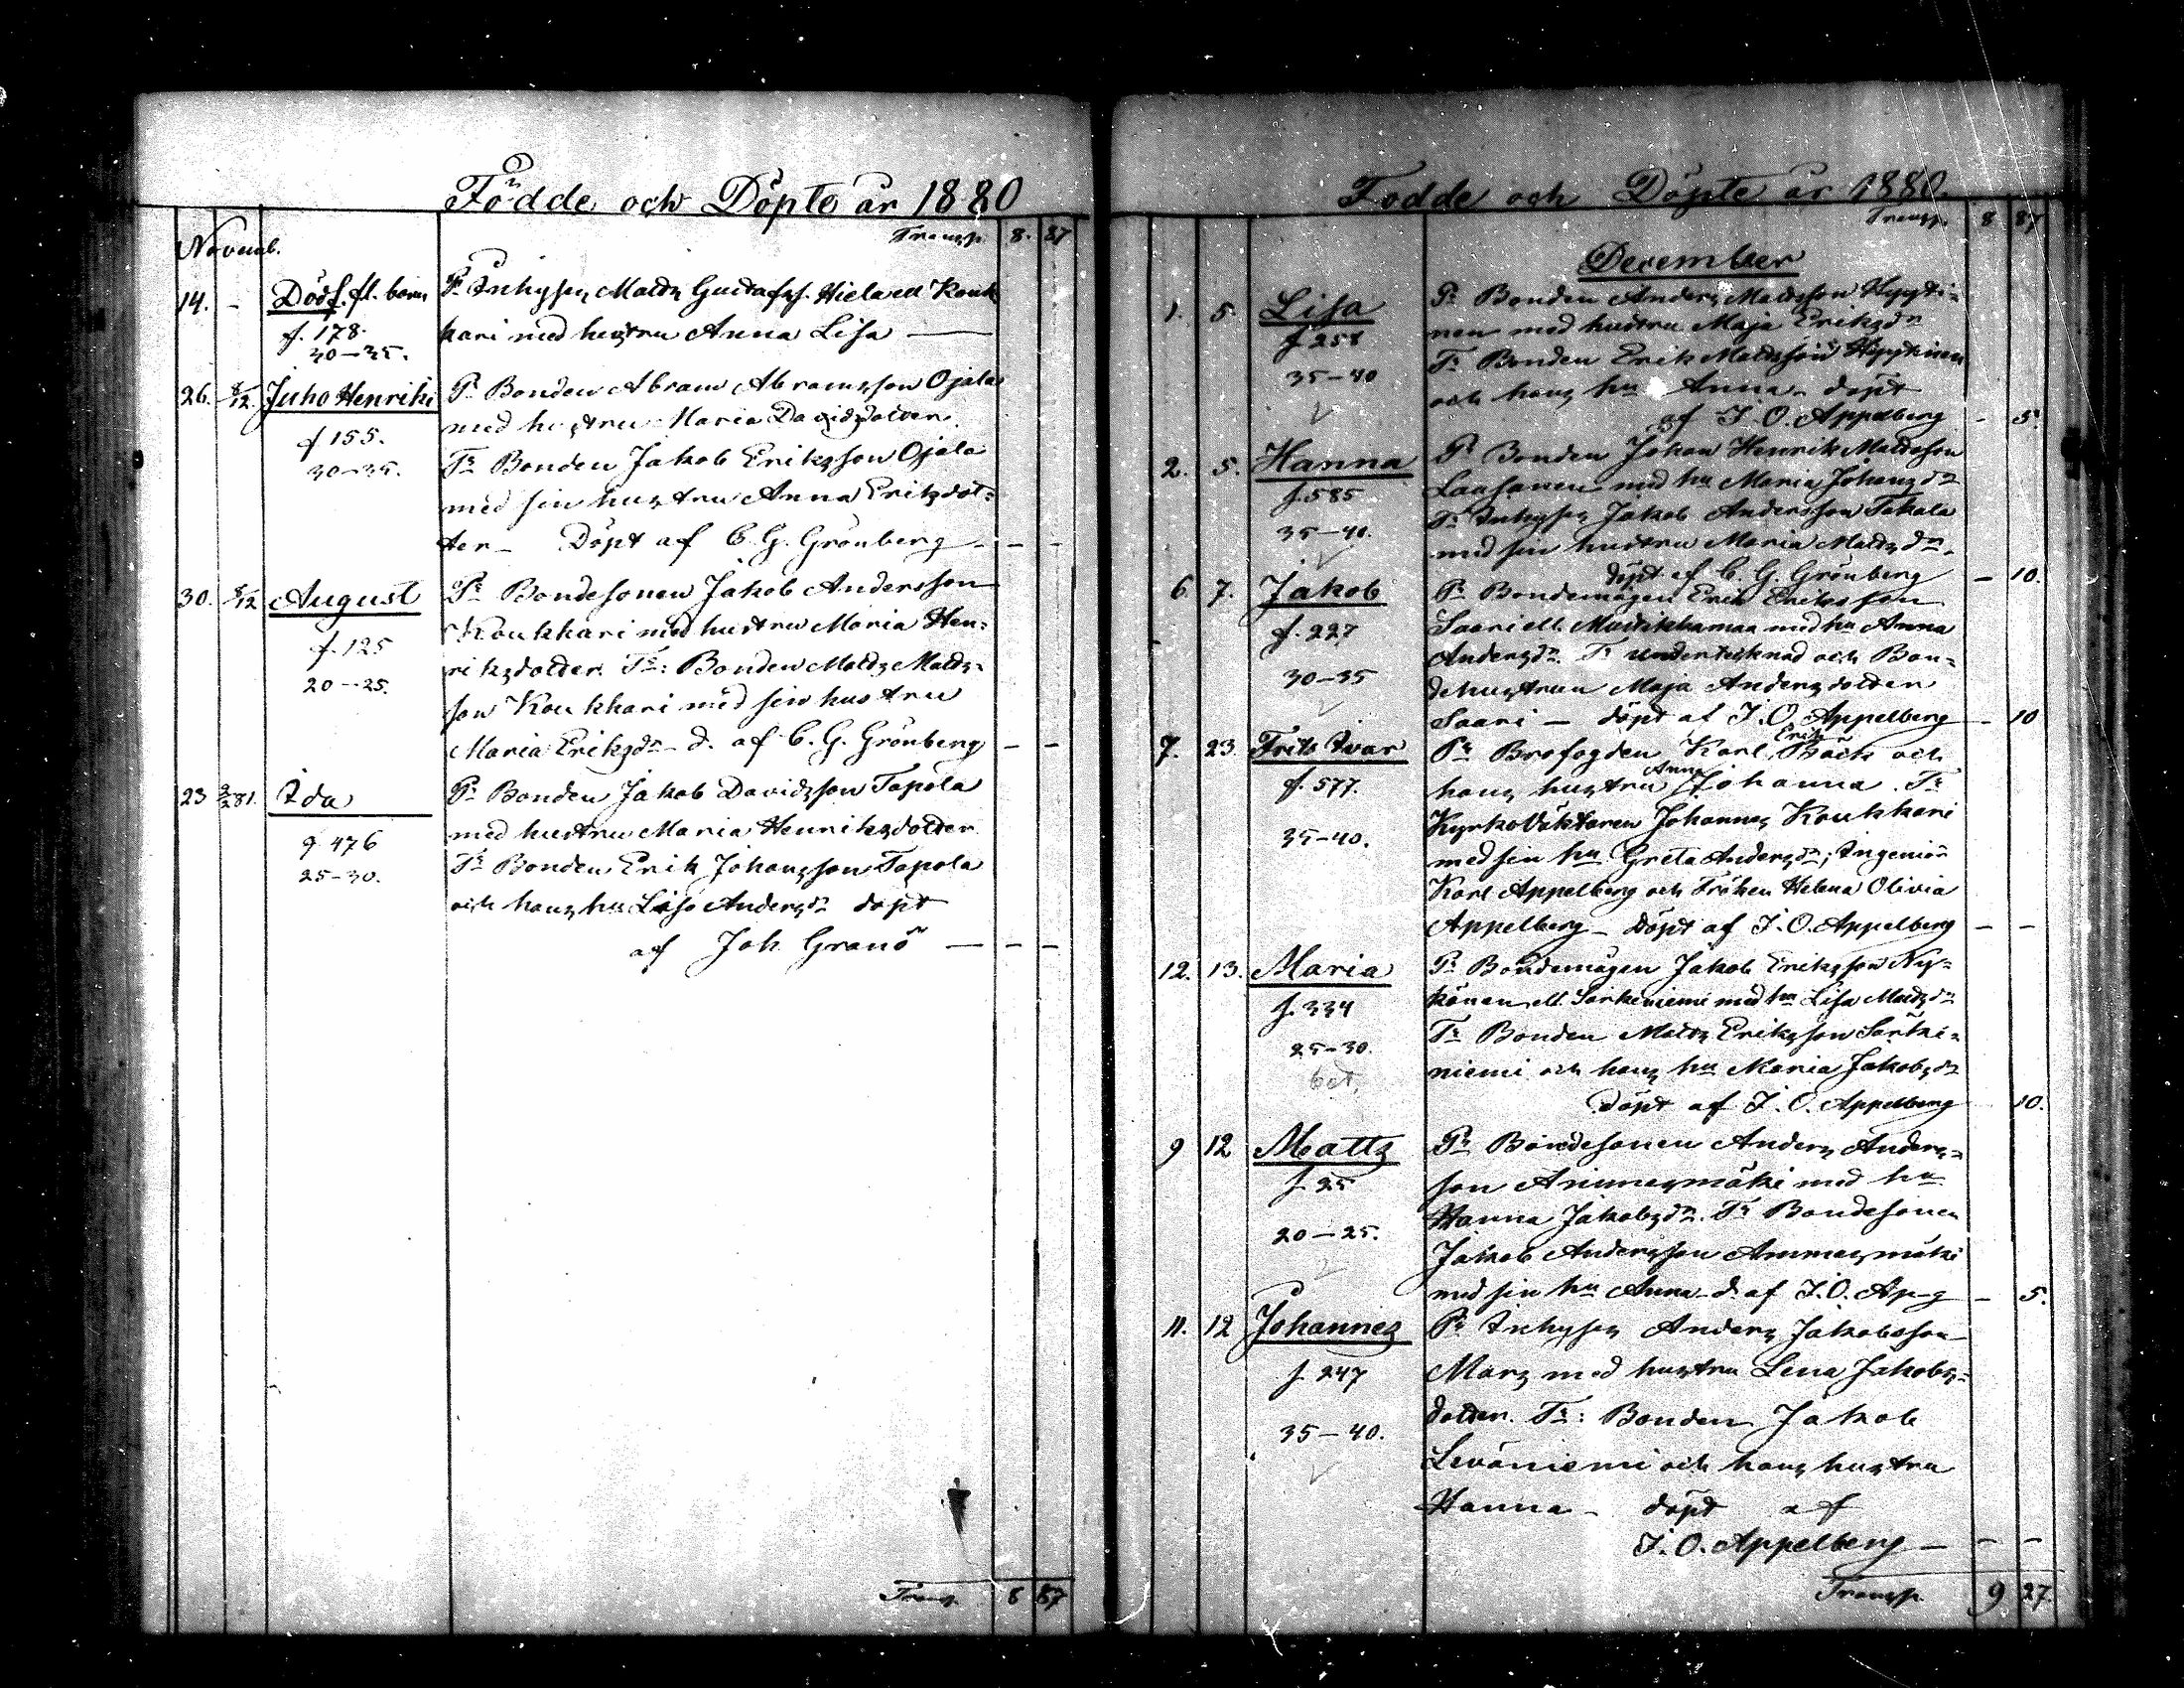 Födde och Döpte år 1880
Transp. 8. 87
Novemb.
14. - Dödf. fl. barn Pr Inhyses Matts Gustafss. Hiela ell Kouk
f. 178. kari med hustru Anna Lisa —
30-35.
26. 5/12. Juho Henriki Pr Bonden Abram Abramsson Ojala
med hustru Maria Davidsdotter.
f 155. Tr Bonden Jakob Eriksson Ojala
30-35. med sin hustru Anna Eriksdot=
ter - Döpt af C. G. Grönberg - - -
30. 5/12 August Pr Bondesonen Jakob Andersson
f. 125 Koukkari med hustru Maria Hen=
20-25. riksdotter. Tr: Bonden Matts Matts-
son Koukkari med sin hustru
Maria Eriksdr - d. af C. G. Grönberg - -
23 2/2 81. Ida Pr Bonden Jakob Davidsson Tapola
f. 476 med hustru Maria Henriksdotter
25-30. Tr Bonden Erik Johansson Tapola
och hans hu Lisa Andersdr döpt
af Joh. Granö — - -
Transp. 8 87
Födde och Döpte år 1880.
Transp. 8 87
December
1. 5. Lisa Pr Bonden Anders Mattsson Hyyti=
f 258 nen med hustru Maja Eriksdr
35-40 Tr Bonden Erik Mattsson
och hans hu Anna - döpt
af J. O. Appelberg - 5.
2. 5. Hanna Pr Bonden Johan Henrik Mattsson
f. 585 med hu Maria Johansdr
35-40. Tr Inhyses Jakob Andersson Takala
med sin hustru Maria Mattsdr.
döpt af C. G. Grönberg - 10.
6. 7. Jakob Pr Bondemågen Erik Eriksson
f. 227 Saari ell. med hu Anna
30-35 Andersdr. Tr undertecknad och Bon=
dehustrun Maja Andersdotter
Saari — döpt af J. O. Appelberg - 10
7. 23. Frits Ivar Pr Brofogden Karl Erik Back och
f. 577. hans hustru Anna Johanna. Tr
35-40. Kyrkoväktaren Johannes Koukkari
med sin hu Greta Andersdr; Ingeniör
Karl Appelberg och Fröken Helena Olivia
Appelberg - Döpt af J. O. Appelberg - -
12. 13. Maria Pr Bondemågen Jakob Eriksson Ny=
f. 334 känen ell. Särkiniemi med hu Lisa Mattsdr
25-30. Tr Bonden Matts Eriksson Särki=
niemi och hans hu Maria Jakobsdr
döpt af J. O. Appelberg 10.
9 12 Matts Pr Bondesonen Anders Anders=
f. 25 son Ammesmäki med hu
20-25. Hanna Jakobsdr. Tr Bondesonen
Jakob Andersson Ammesmäki
med sin hu Anna - d. af J. O. Ap-g - 5.
11. 12 Johannes Pr Inhyses Anders Jakobsson
f. 247 Mars med hustru Lena Jakobs=
35-40. dotter. Tr: Bonden Jakob
Leväniemi och hans hustru
Hanna - döpt af
J. O. Appelberg — - -
Transp. 9 27.